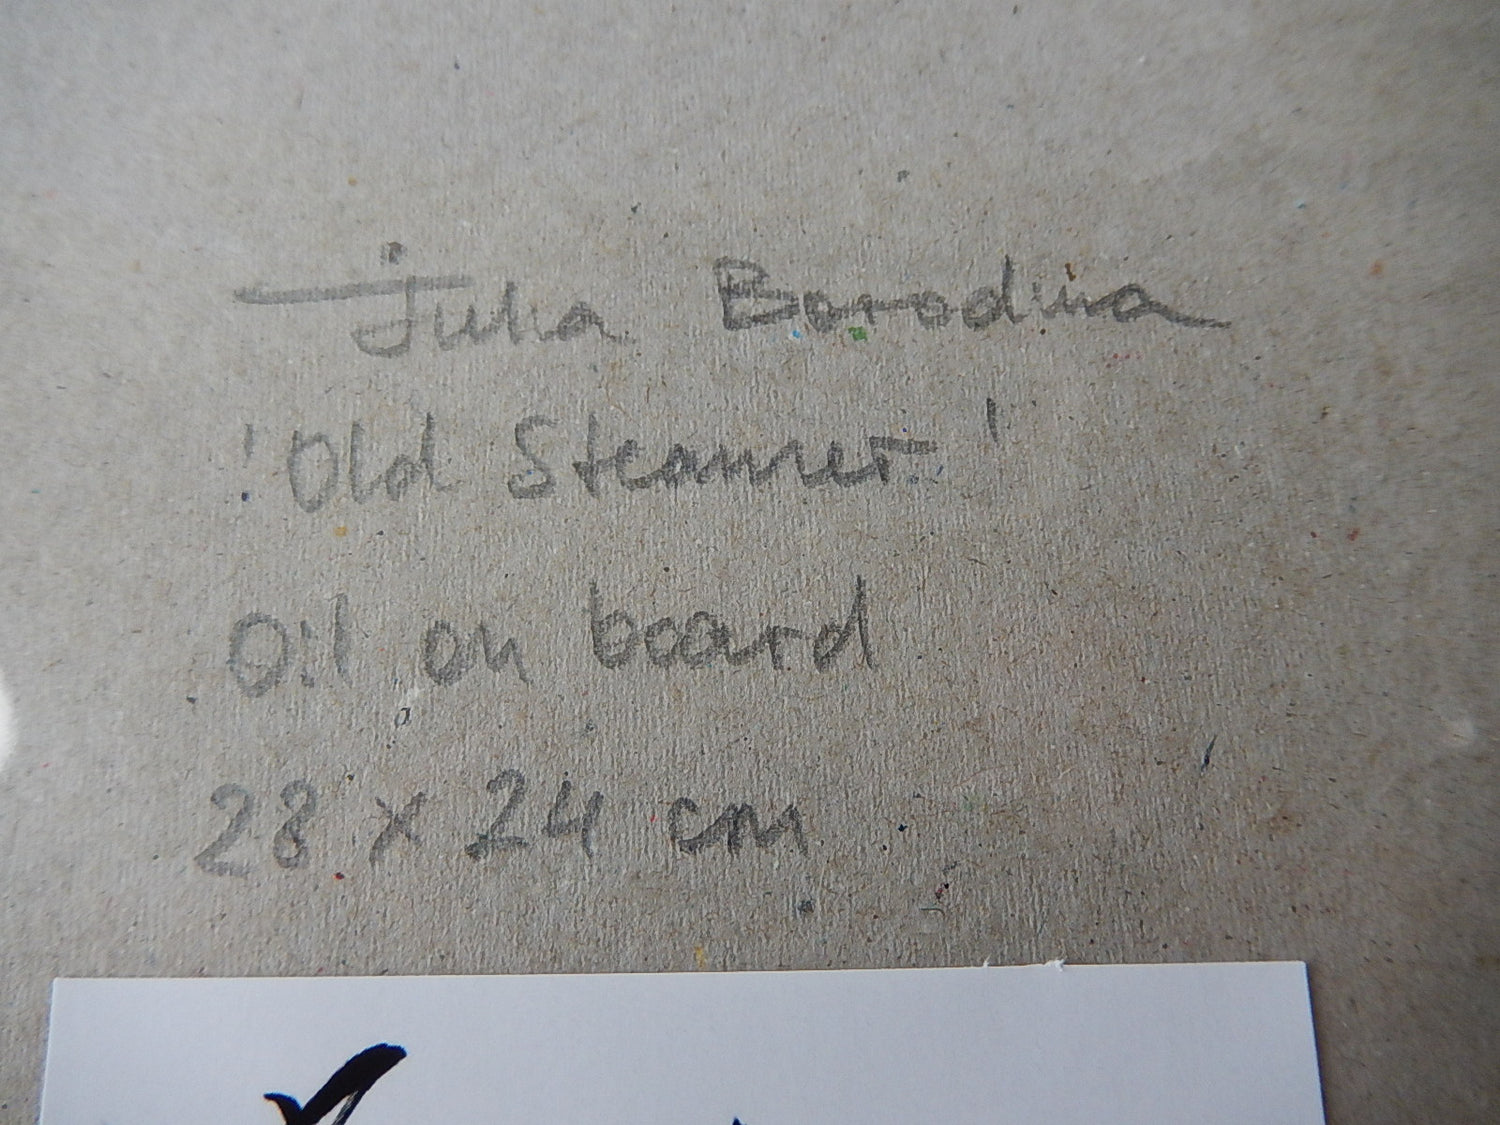 Julia Borodina
'Old Steamer'
Oil on board
28 x 24 cm